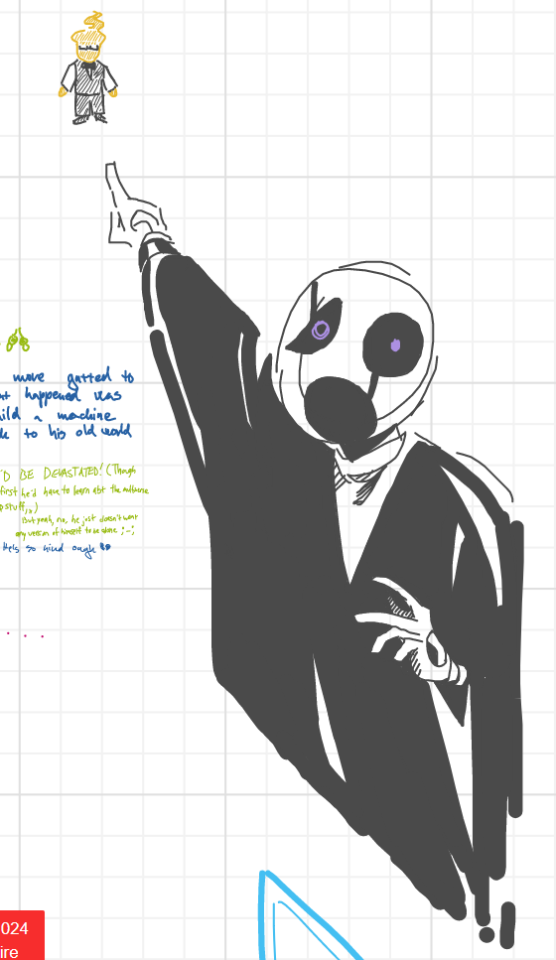 move gatted to
happened was
ild a machine
to his old world
'D BE DEVASTATED! (Though
first he'd have to learn abt the
stuff,,,)
But yeah, no, he just doesn't want
any version of himself to be alone ;-;
He's so kind ough
. . .
024
ire